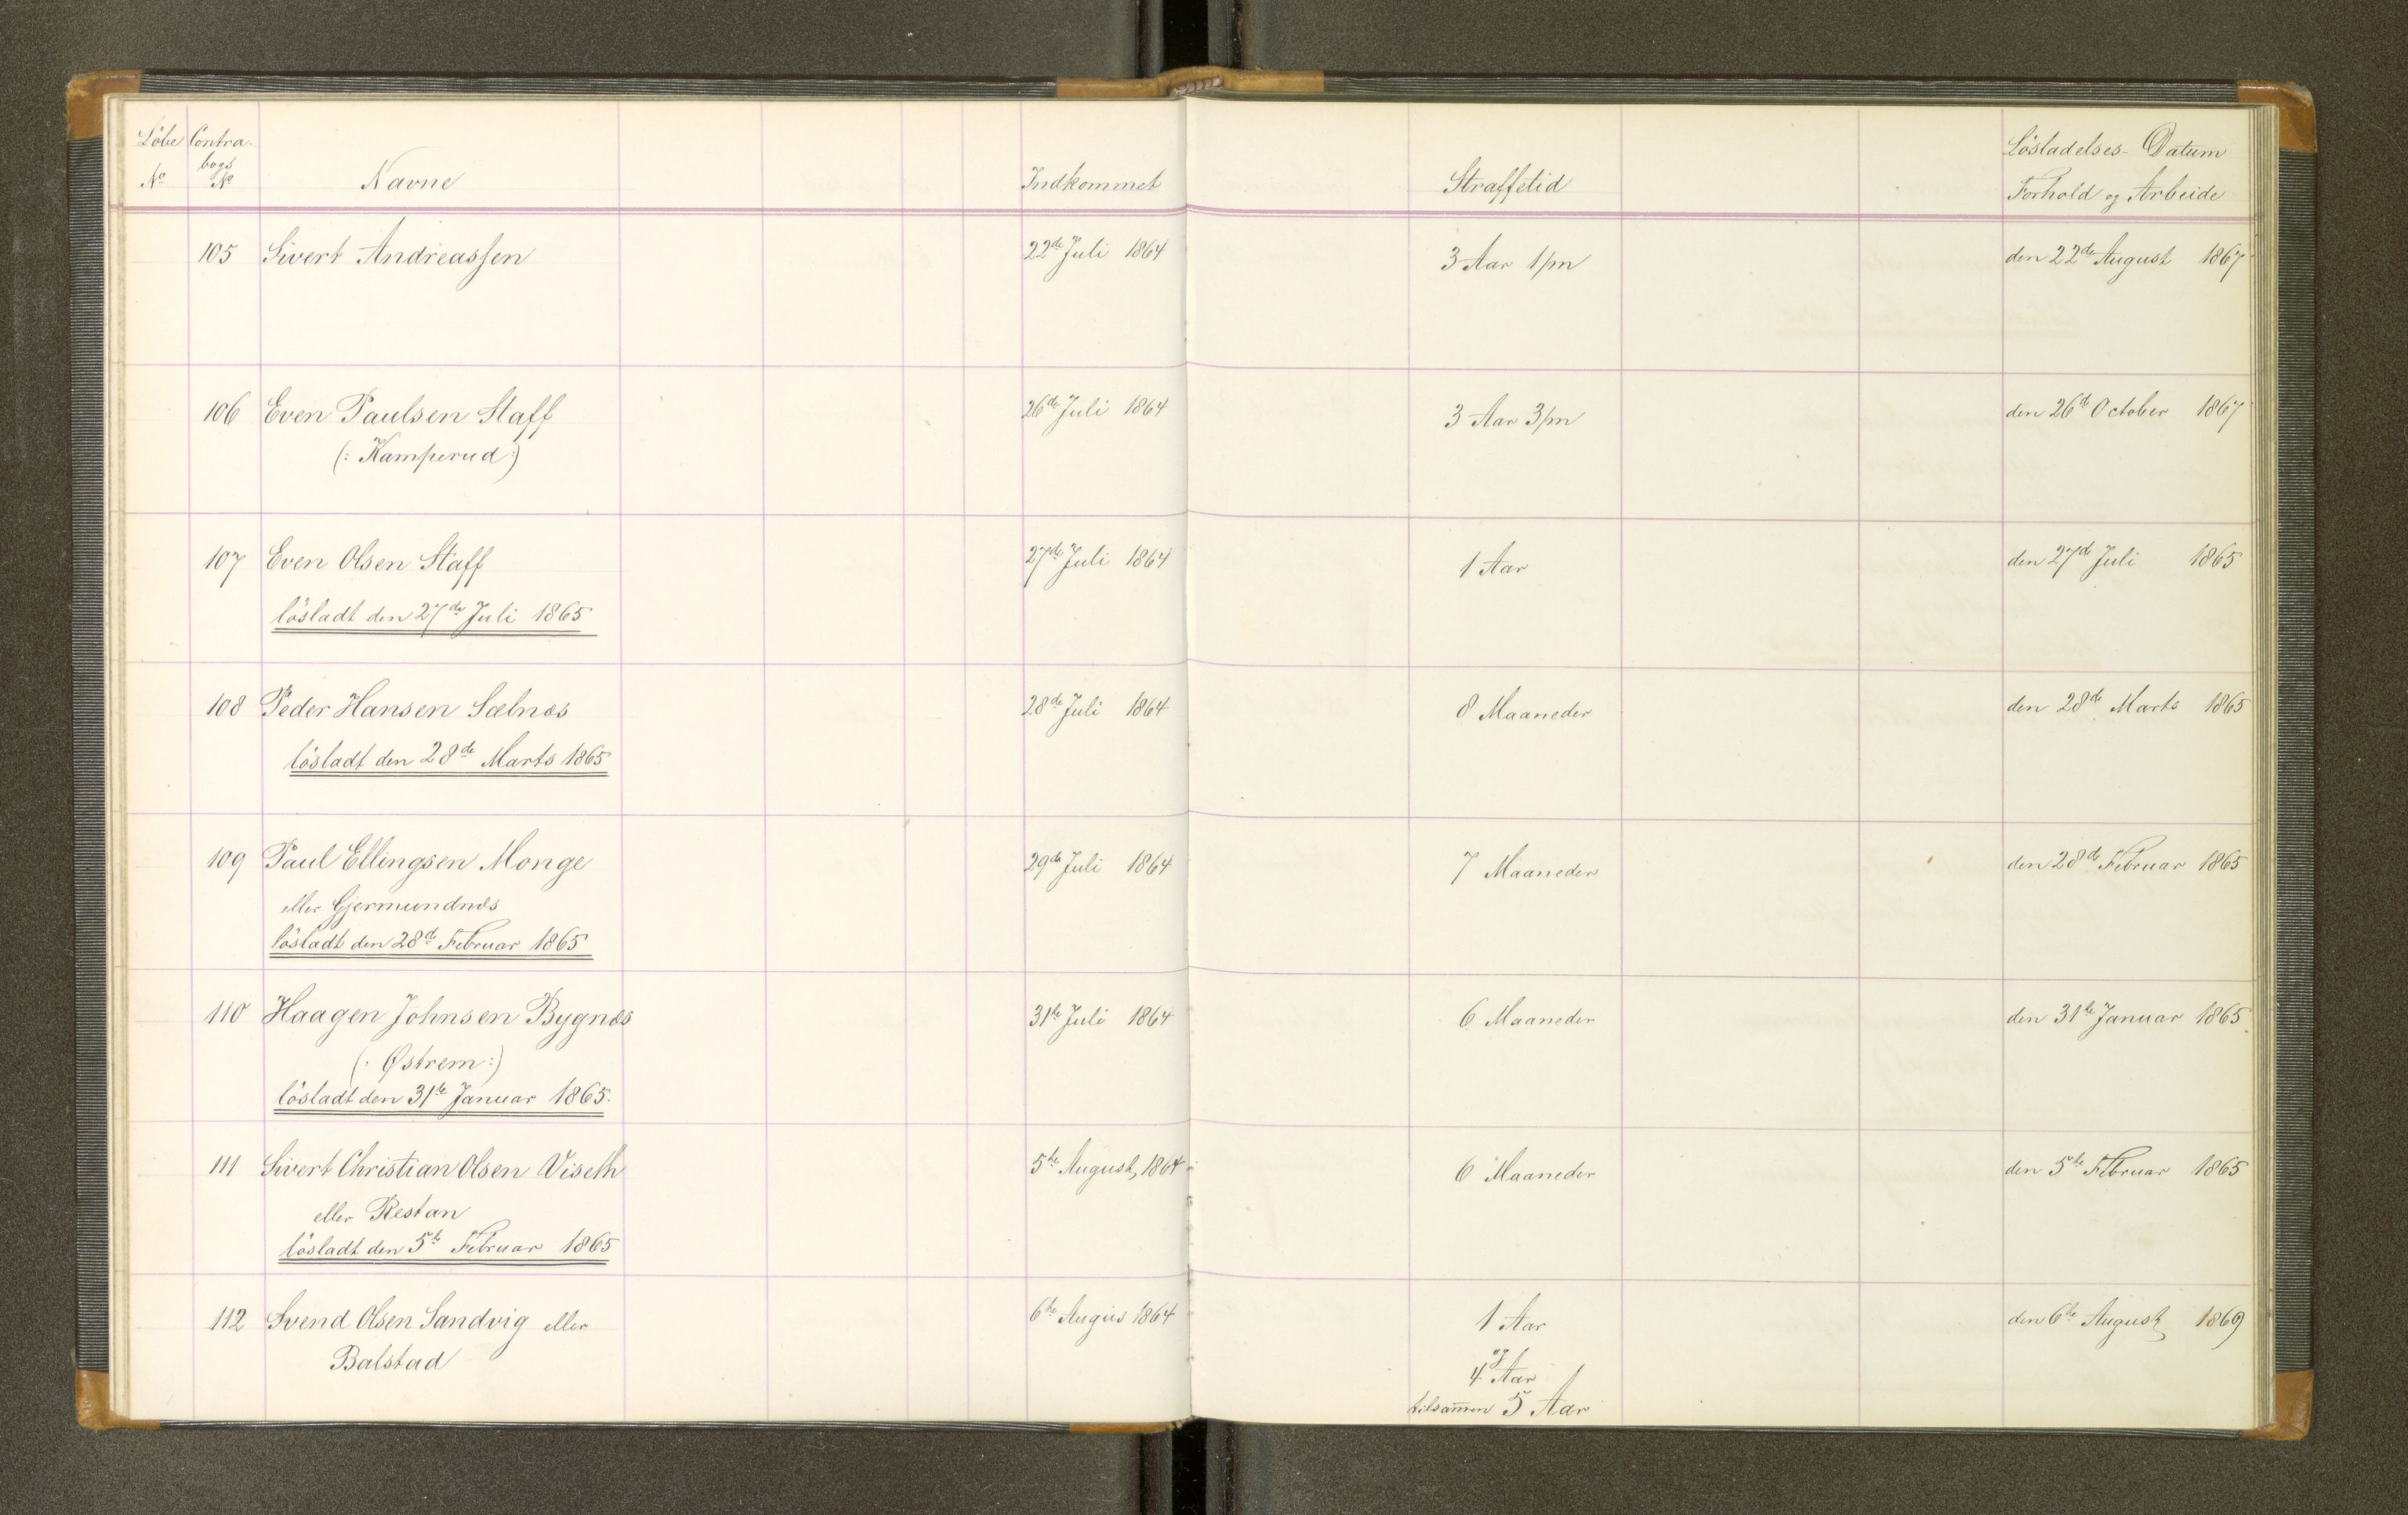 Löbe Contra- Lösladelses- Datum
bogs
No No Navne Indkommet Straffetid Forhold og Arbeide
105 Sivert Andreassen 22de Juli 1864 3 Aar 1/m den 22de August 1867
106 Even Paulsen Staff 26de Juli 1864 3 Aar 3/m den 26de October 1867
(: Kamperud :)
107 Even Olsen Staff 27de Juli 1864 1 Aar den 27de Juli 1865
lösladt den 27de Juli 1865
108 Peder Hansen Sælnæs 28de Juli 1864 8 Maaneder den 28de Marts 1865
lösladt den 28de Marts 1865
109 Paul Ellingsen Monge 29de Juli 1864 7 Maaneder den 28de Februar 1865
eller Gjermundnæs
lösladt den 28de Februar 1865
110 Haagen Johnsen Bygnæs 31te Juli 1864 6 Maaneder den 31te Januar 1865
(: Østrem :)
lösladt den 31te Januar 1865.
111 Sivert Christian Olsen Viseth 5te August 1864 6 Maaneder den 5te Februar 1865
eller Restan
lösladt den 5te Februar 1865
112 Svend Olsen Sandvig eller 6te Augus 1864 1 Aar den 6te August 1869
og
Balstad 4 Aar
tilsam̄en 5 Aar